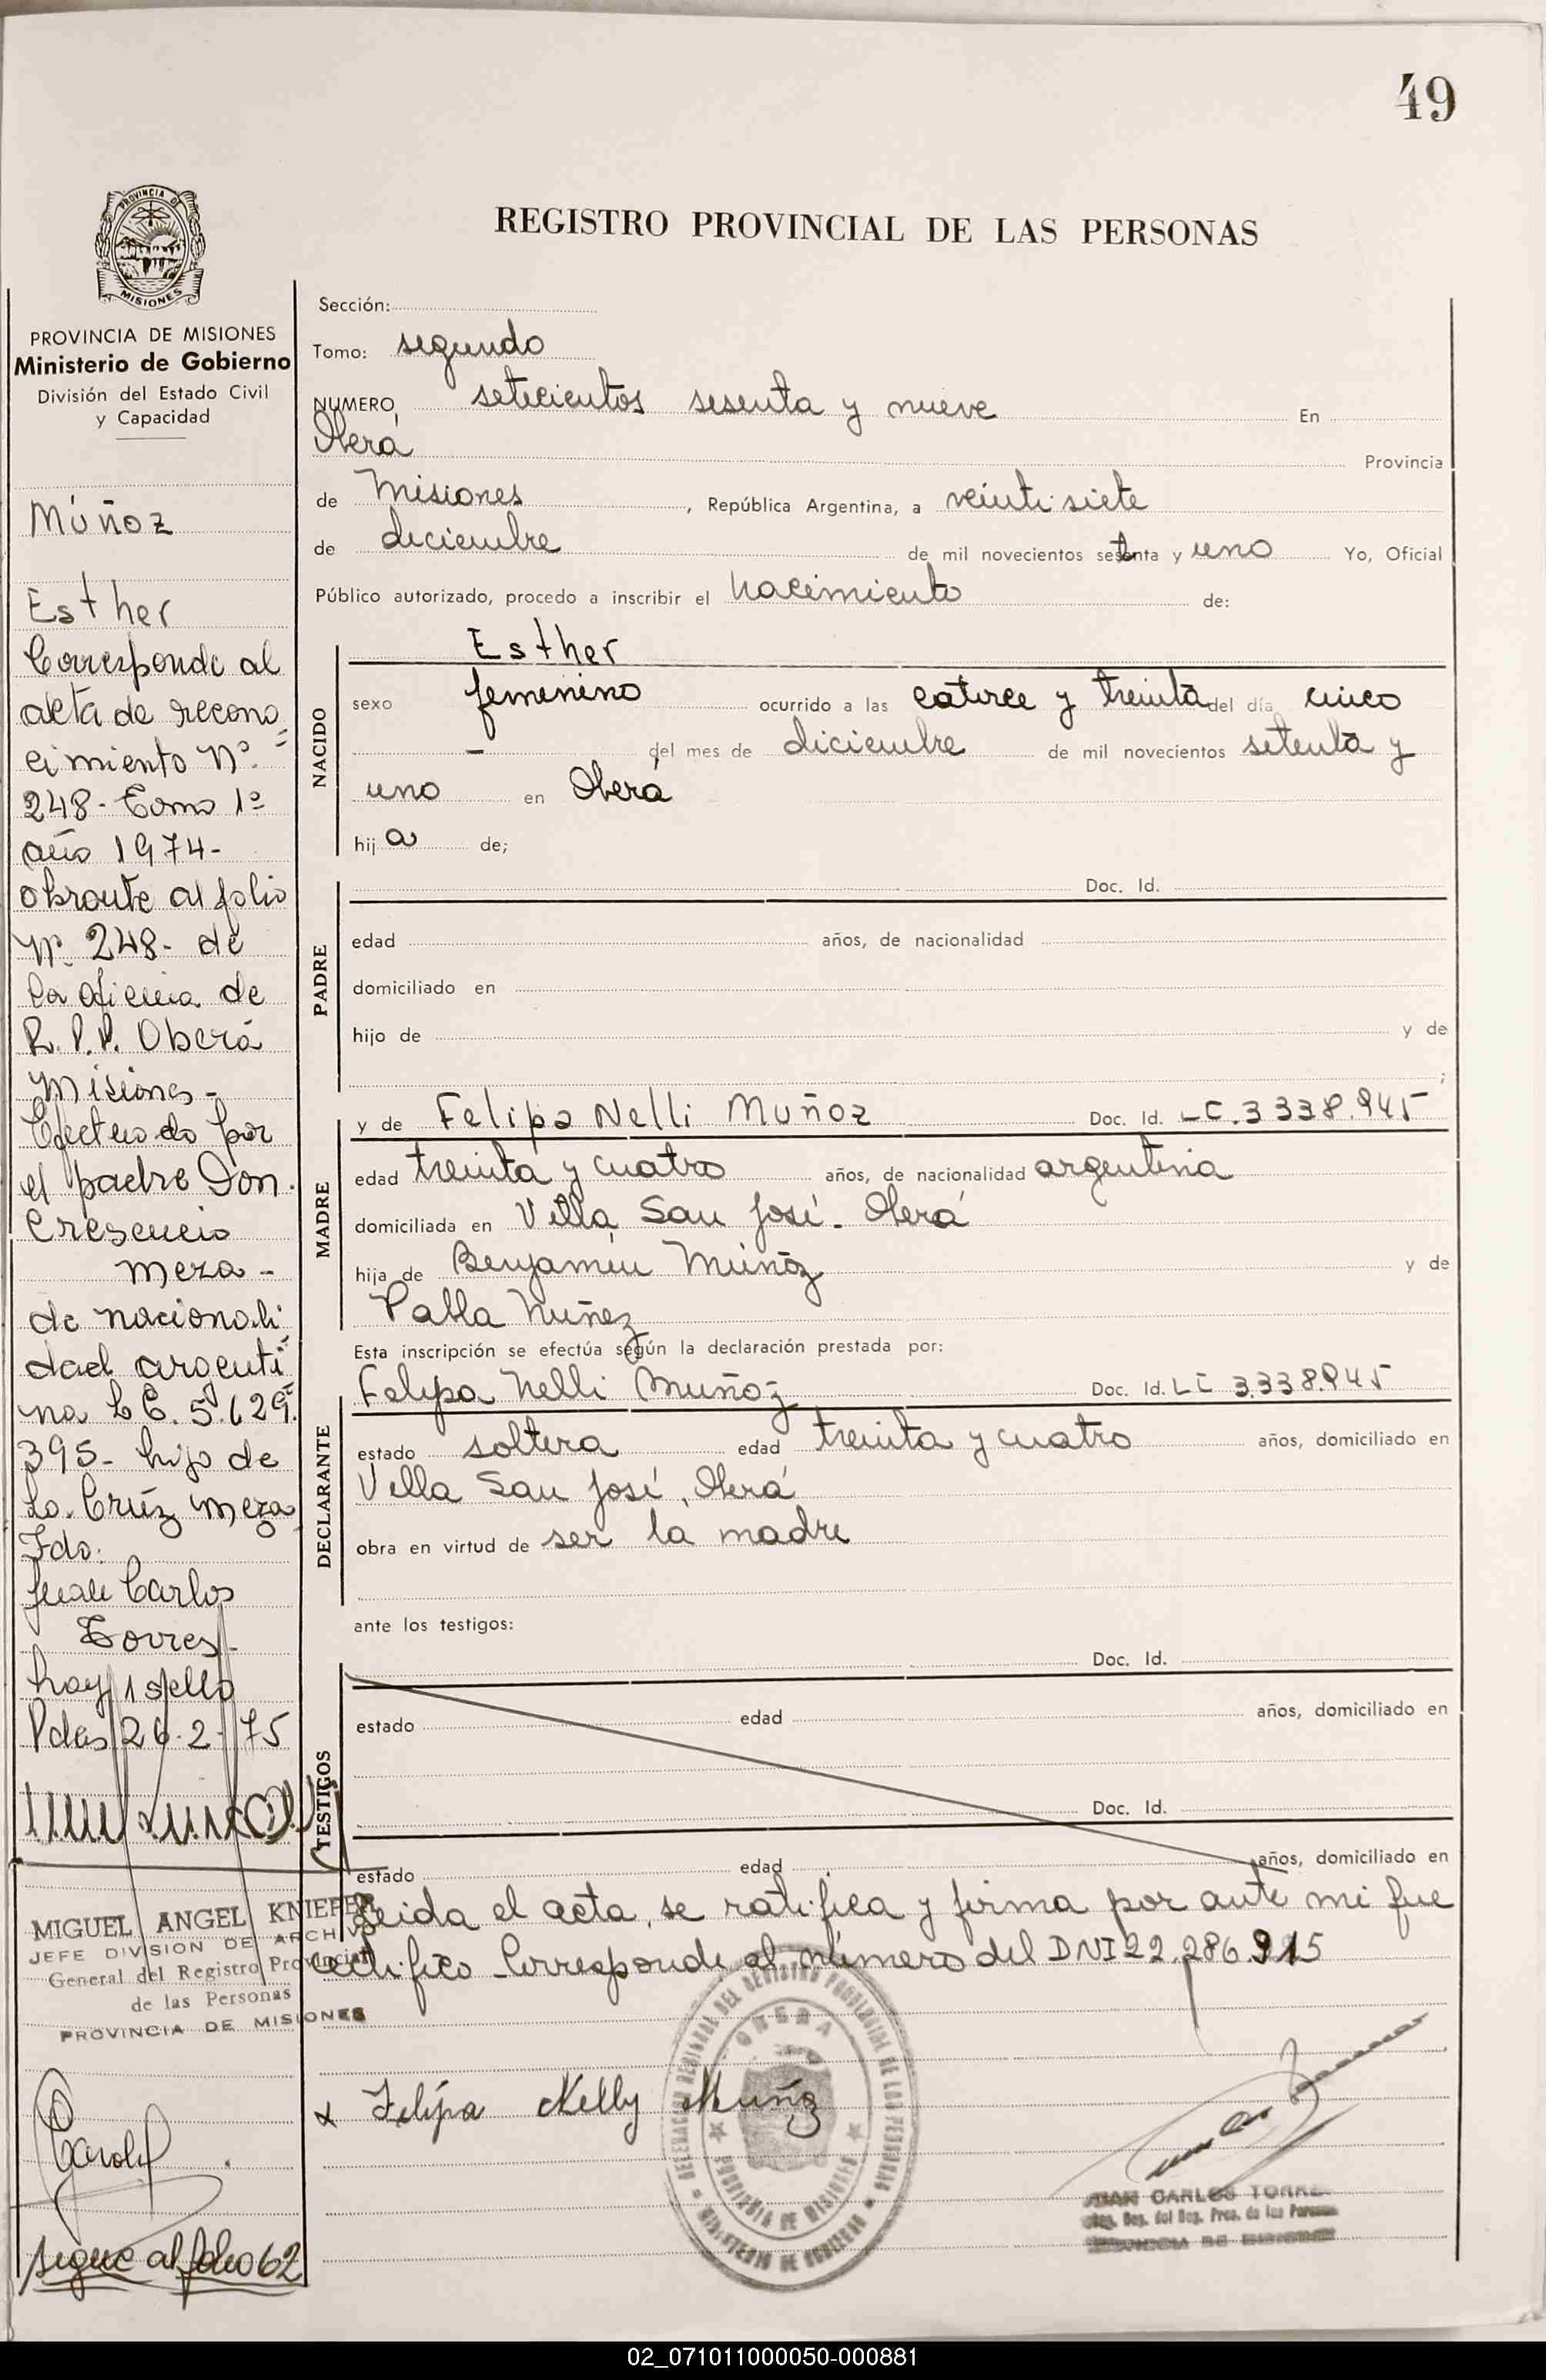 49
REGISTRO PROVINCIAL DE LAS PERSONAS
PROVINCIA DE MISIONES
PROVINCIA DE MISIONES
Ministerio de Gobierno
División del Estado Civil
y Capacidad
Múñoz
Esther
Corresponde al
acta de recono
cimiento Nº
248- Tomo 1º
año 1974-
obrante al folio
Nº 248- de
la oficina de
R.P.P. Oberá
Misiones-
Efectuado por
el padre Don
Crescencio
Meza-
de nacionali
dad argenti
na L E. 5.629.
395- hijo de
La Cruz Meza
Fdo:
Juan Carlos
Torres-
hay 1 sello
Pdas 26-2-75
MIGUEL ANGEL KNIEFER
JEFE DIVISION DE ARCHIVO
General del Registro Provincial
de las Personas
PROVINCIA DE MISIONES
sigue al folio 62
Sección:
Tomo: segundo
NUMERO setecientos sesenta y nueve En
Oberá Provincia
de Misiones, República Argentina, a veintisiete
de diciembre de mil novecientos setenta y uno Yo, Oficial
Público autorizado, procedo a inscribir el nacimiento de:
NACIDO
Esther
sexo femenino ocurrido a las catorce y treinta del día cinco
- del mes de diciembre de mil novecientos setenta y
uno en Oberá
hija de;
PADRE
Doc. Id.
edad años, de nacionalidad
domiciliado en
hijo de y de
;
MADRE
y de Felipa Nelli Muñoz Doc. Id. LC.3338.945
edad treinta y cuatro años, de nacionalidad argentina
domiciliada en Villa San José- Oberá
hija de Benjamín Múñoz y de
Pabla Nuñez
Esta inscripción se efectúa según la declaración prestada por:
DECLARANTE
Felipa Nelli Muñoz Doc. Id. LC 3.338.945
estado soltera edad treinta y cuatro años, domiciliado en
Villa San José, Oberá
obra en virtud de ser la madre
ante los testigos:
TESTIGOS
Doc. Id.
estado edad años, domiciliado en
Doc. Id.
estado edad años, domiciliado en
Leida el acta, se ratifica y firma por ante mi que
certifico- Corresponde el número del DNI 22.286.915
x Felipa Nelly Muñoz
OBERA
PROVINCIA DE MISIONES
MINISTERIO DE GOBIERNO
JUAN CARLOS TORRES
02_071011000050-000881